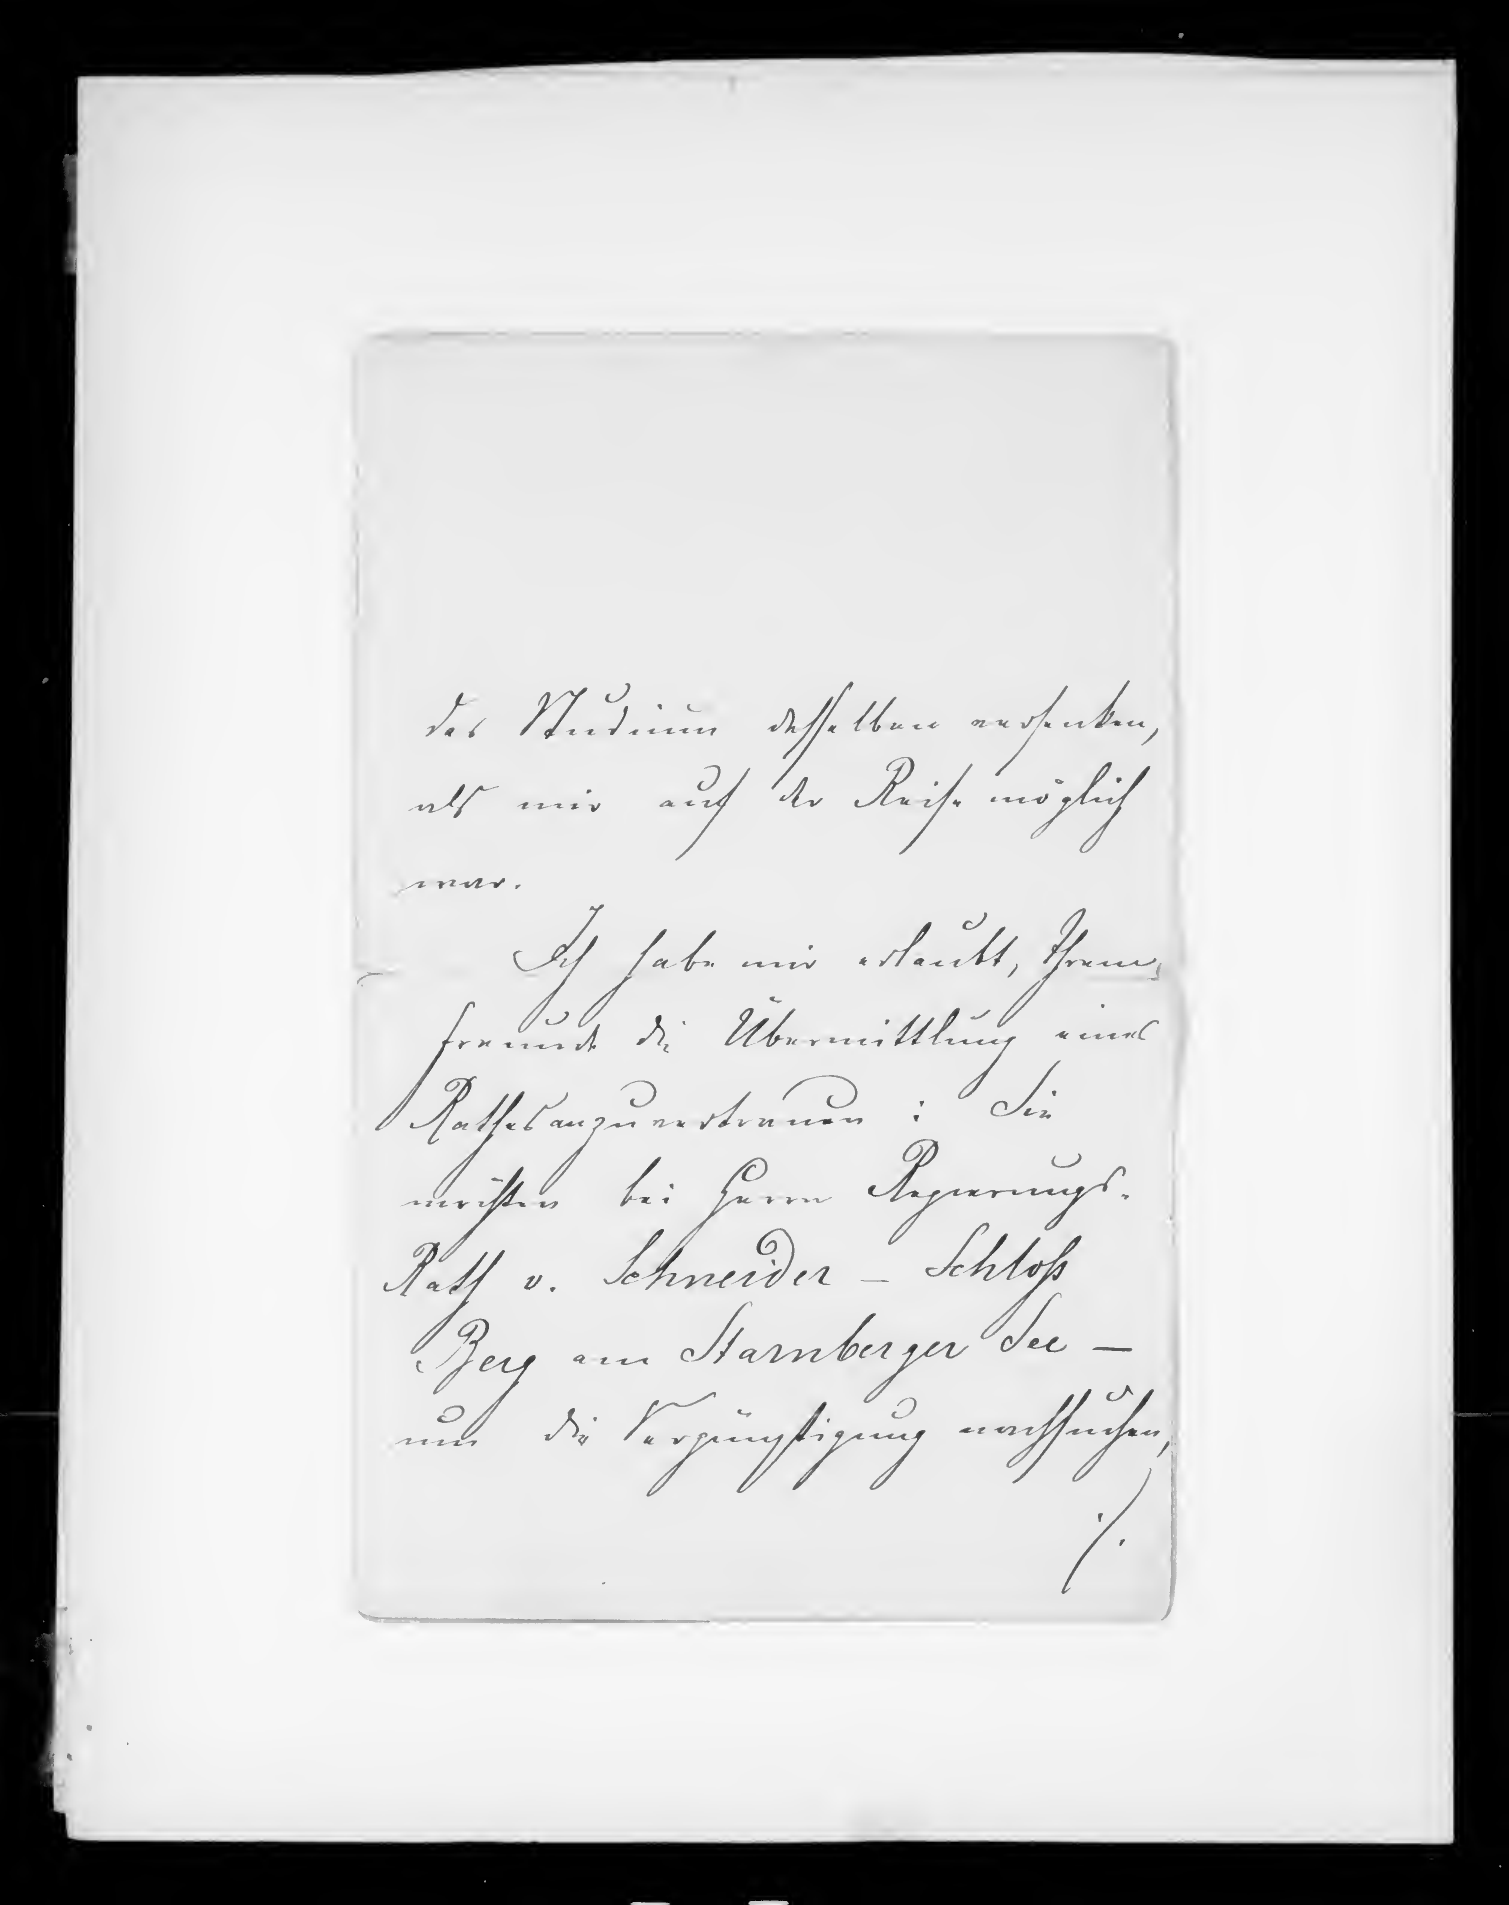 das Studium desselben versenken,
als mir auf der Reise möglich
war.
Ich habe mir erlaubt, Ihrem
Freunde die Übermittlung eines
Rathes anzuvertrauen: Sie
möchten bei Herrn Regierungs-
Rath v. Schneider – Schloß
Berg am Starnberger See –
um die Vergünstigung nachsuchen,
./.